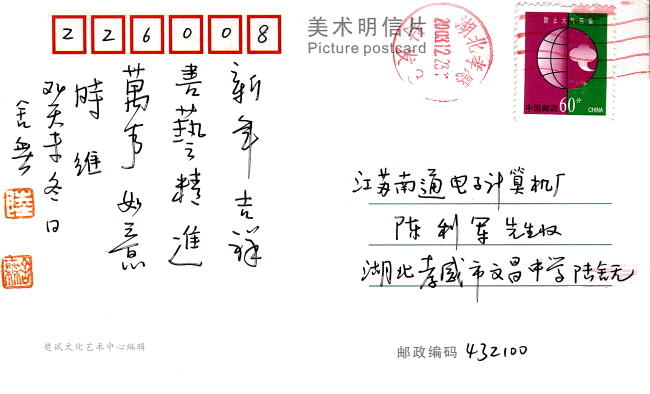 226008
美术明信片
Picture postcard
湖北孝感
2003.12.23
防止大气污染
中国邮政 60分 CHINA
新年吉祥
书艺精進
萬事如意
時維
癸未冬日
舍無
江苏南通电子计算机厂
陈利军先生收
湖北孝感市文昌中学陆舍无
邮政编码 432100
楚风文化艺术中心编辑